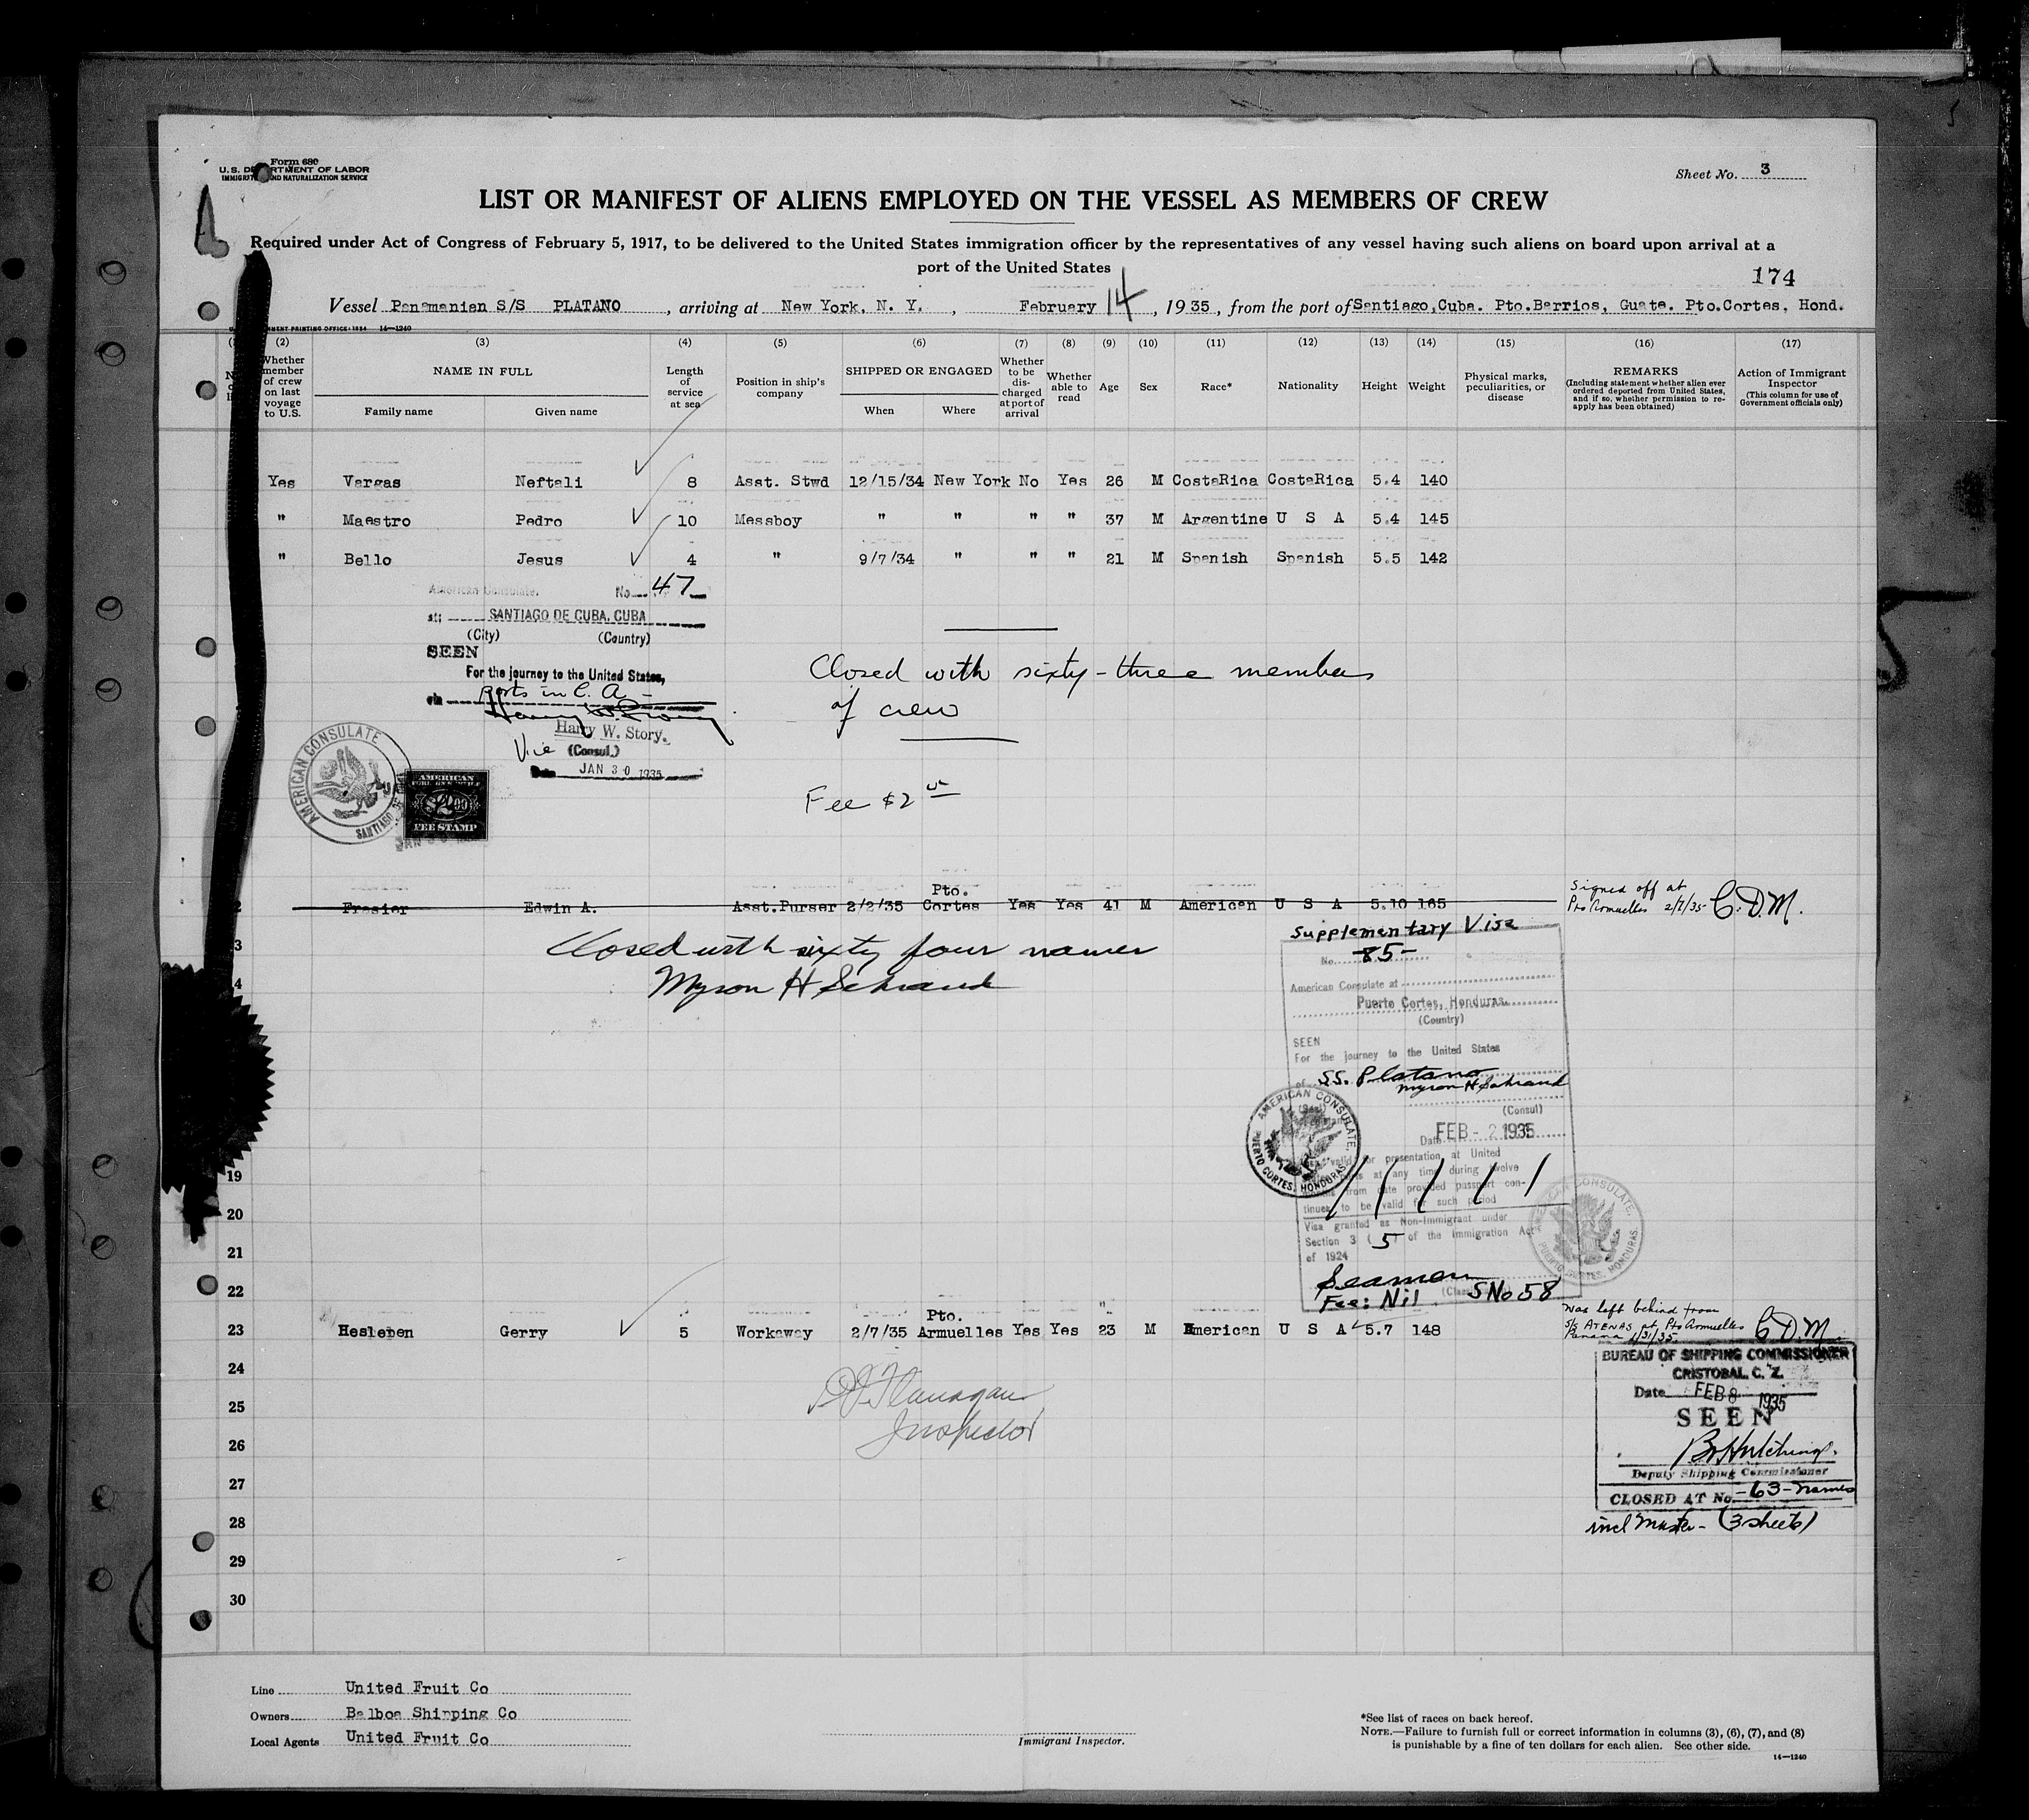 Form 680
U. S. DEPARTMENT OF LABOR
IMMIGRATION AND NATURALIZATION SERVICE
Sheet No. 3
LIST OR MANIFEST OF ALIENS EMPLOYED ON THE VESSEL AS MEMBERS OF CREW
Required under Act of Congress of February 5, 1917, to be delivered to the United States immigration officer by the representatives of any vessel having such aliens on board upon arrival at a
port of the United States
174
Vessel Panamanian S/S PLATANO, arriving at New York, N. Y., February 14, 1935, from the port of Santiago,Cuba. Pto.Barrios, Guate. Pto.Cortes, Hond.
MENT PRINTING OFFICE: 1934 14—1240
(2) (3) (4) (5) (6) (7) (8) (9) (10) (11) (12) (13) (14) (15) (16) (17)
Whether member of crew on last voyage to U.S.
NAME IN FULL
Family name Given name
Length of service at sea
Position in ship's company
SHIPPED OR ENGAGED
When Where
Whether to be discharged at port of arrival
Whether able to read
Age
Sex
Race*
Nationality
Height
Weight
Physical marks, peculiarities, or disease
REMARKS
(Including statement whether alien ever ordered deported from United States, and if so, whether permission to re-apply has been obtained)
Action of Immigrant Inspector
(This column for use of Government officials only)
Yes Vargas Neftali 8 Asst. Stwd 12/15/34 New York No Yes 26 M CostaRica CostaRica 5.4 140
" Maestro Pedro 10 Messboy " " " " 37 M Argentine U S A 5.4 145
" Bello Jesus 4 " 9/7/34 " " " 21 M Spanish Spanish 5.5 142
American Consulate. No. 47
at: SANTIAGO DE CUBA, CUBA
(City) (Country)
SEEN
For the journey to the United States,
via ports in C. A.
Harry W. Story.
Vice (Consul.)
Date JAN 30 1935
AMERICAN CONSULATE
SANTIAGO
AMERICAN
$2.00
FEE STAMP
Closed with sixty-three members
of crew
Fee $2
Pto.
2 Frasier Edwin A. Asst.Purser 2/2/35 Cortes Yes Yes 41 M American U S A 5.10 165
Signed off at
Pto Armuelles 2/7/35 C.D.M.
3
Closed with sixty four names
4
Myron H Schraud
Supplementary Visa
No. 85
American Consulate at
Puerto Cortes, Honduras
(Country)
SEEN
For the journey to the United States
of SS. Platano
Myron H Schraud
(Consul)
Date FEB - 2 1935
valid for presentation at United
at any time during twelve
from date provided passport con-
tinues to be valid for such period
Visa granted as Non-Immigrant under
Section 3 (5) of the Immigration Act
of 1924
Seaman
Fee: Nil SNo 58
AMERICAN CONSULATE,
PUERTO CORTES, HONDURAS
AMERICAN CONSULATE,
PUERTO CORTES, HONDURAS.
19
20
21
22
Pto.
23 Hesleben Gerry 5 Workaway 2/7/35 Armuelles Yes Yes 23 M American U S A 5.7 148
was left behind from
S/S ATENAS at Pto Armuelles
Panama 1/31/35. C.D.M.
24
25
26
27
28
29
30
Flanagan
Inspector
BUREAU OF SHIPPING COMMISSIONER
CRISTOBAL, C. Z.
Date FEB 8 1935
SEEN
Deputy Shipping Commissioner
CLOSED AT No. -63- names
incl Master - (3 sheets)
Line United Fruit Co
Owners Balboa Shipping Co
Local Agents United Fruit Co
Immigrant Inspector.
*See list of races on back hereof.
NOTE.—Failure to furnish full or correct information in columns (3), (6), (7), and (8)
is punishable by a fine of ten dollars for each alien. See other side.
14—1240